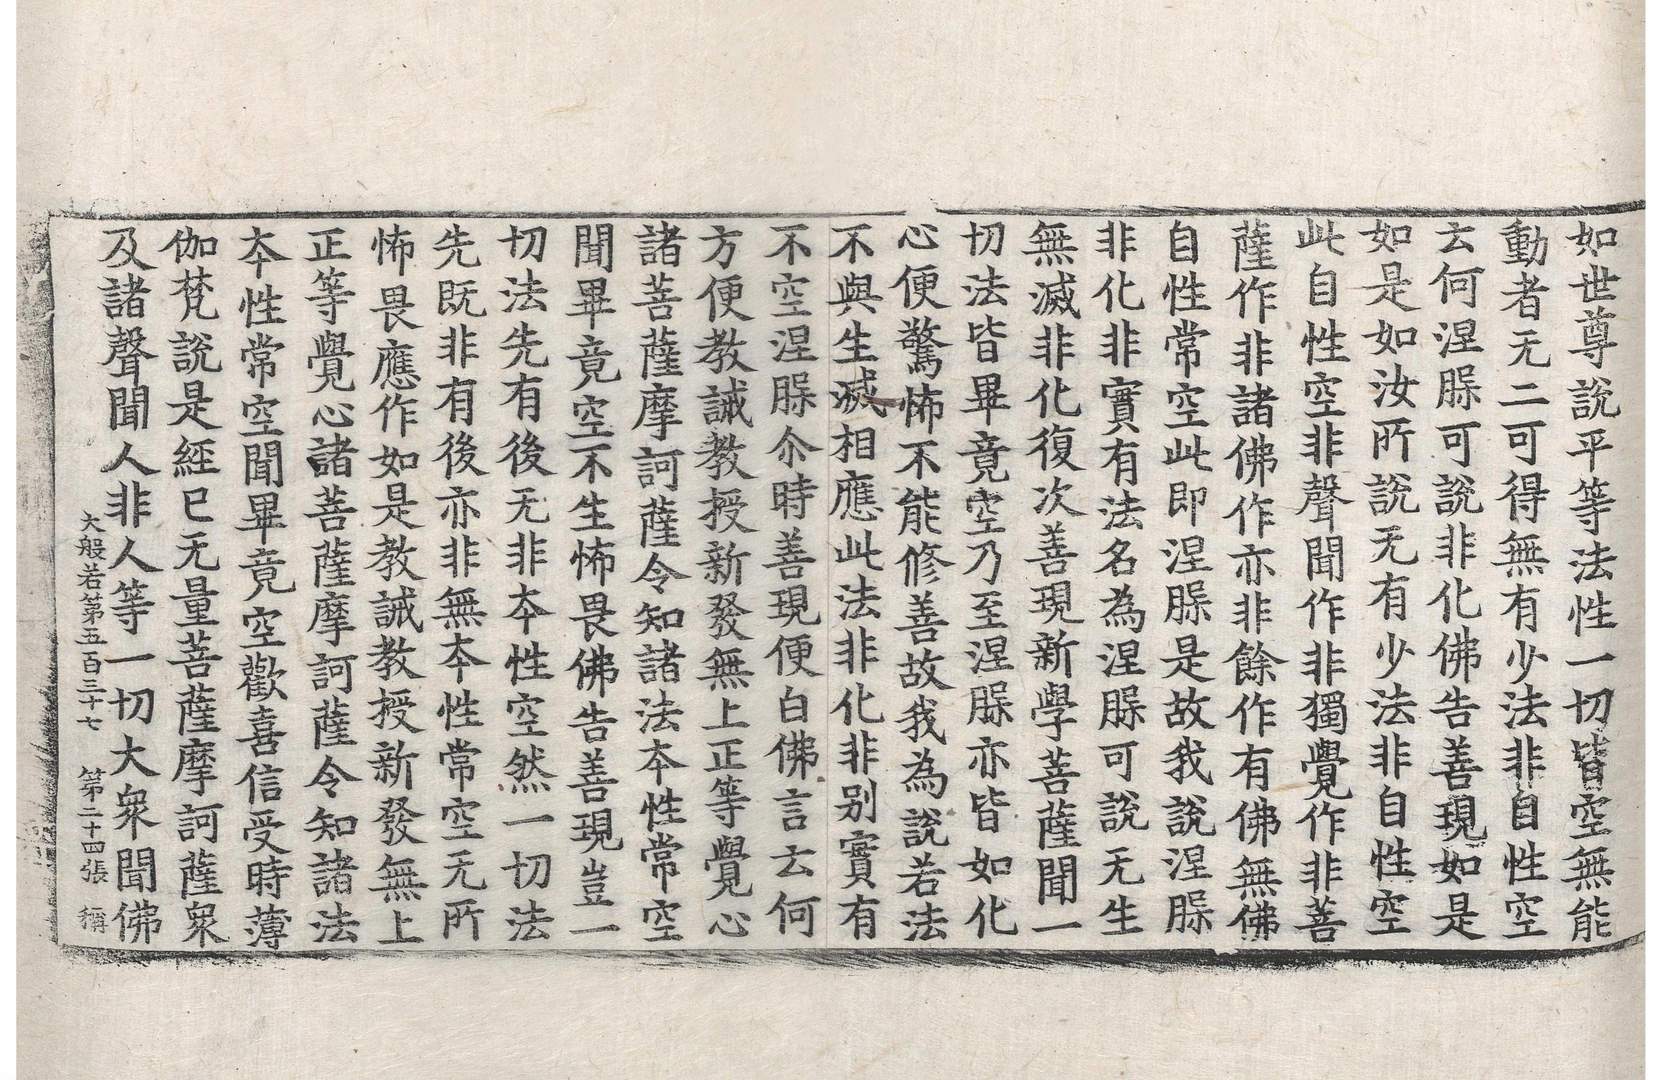 如世尊說平等法性一切皆空無能
動者无二可得無有少法非自性空
云何涅槃可說非化佛告善現如是
如是如汝所說无有少法非自性空
此自性空非聲聞作非獨覺作非菩
薩作非諸佛作亦非餘作有佛無佛
自性常空此即涅槃是故我說涅槃
非化非實有法名為涅槃可說无生
無滅非化復次善現新學菩薩聞一
切法皆畢竟空乃至涅槃亦皆如化
心便驚怖不能修善故我為說若法
不與生滅相應此法非化非別實有
不空涅槃尒時善現便白佛言云何
方便教誡教授新發無上正等覺心
諸菩薩摩訶薩令知諸法夲性常空
聞畢竟空不生怖畏佛告善現豈一
切法先有後无非夲性空然一切法
先既非有後亦非無夲性常空无所
怖畏應作如是教誡教授新發無上
正等覺心諸菩薩摩訶薩令知諸法
夲性常空聞畢竟空歡喜信受時薄
伽梵說是經已无量菩薩摩訶薩衆
及諸聲聞人非人等一切大衆聞佛
大般若第五百三十七 第二十四張 稱